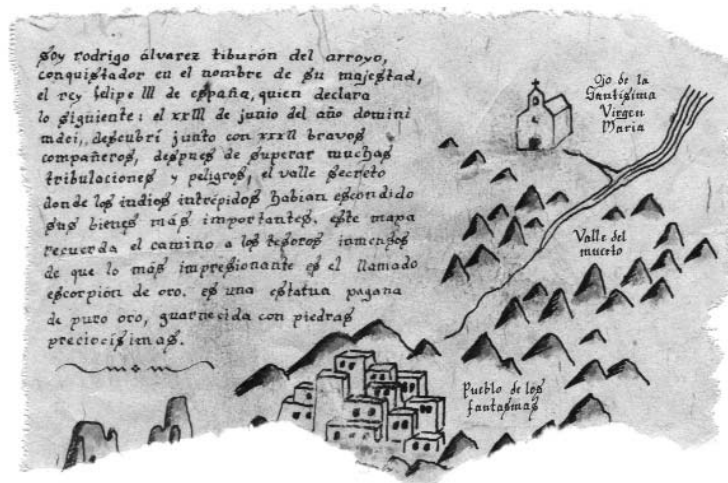 soy rodrigo álvarez tiburón del arroyo,
conquistador en el nombre de su majestad,
el rey felipe III de españa, quien declara
lo siguiente: el xxIII de junio del año domini
mdci, descubrí junto con xxxII bravos
compañeros, despues de superar muchas
tribulaciones y peligros, el valle secreto
donde los indios intrépidos habian escondido
sus bienes más importantes. este mapa
recuerda el camino a los tesoros inmensos
de que lo más impresionante es el llamado
escorpión de oro. es una estatua pagana
de puro oro, guarnecida con piedras
preciocísimas.
Ojo de la
Santísima
Virgen
Maria
Valle del
muerto
Pueblo de los
fantasmas